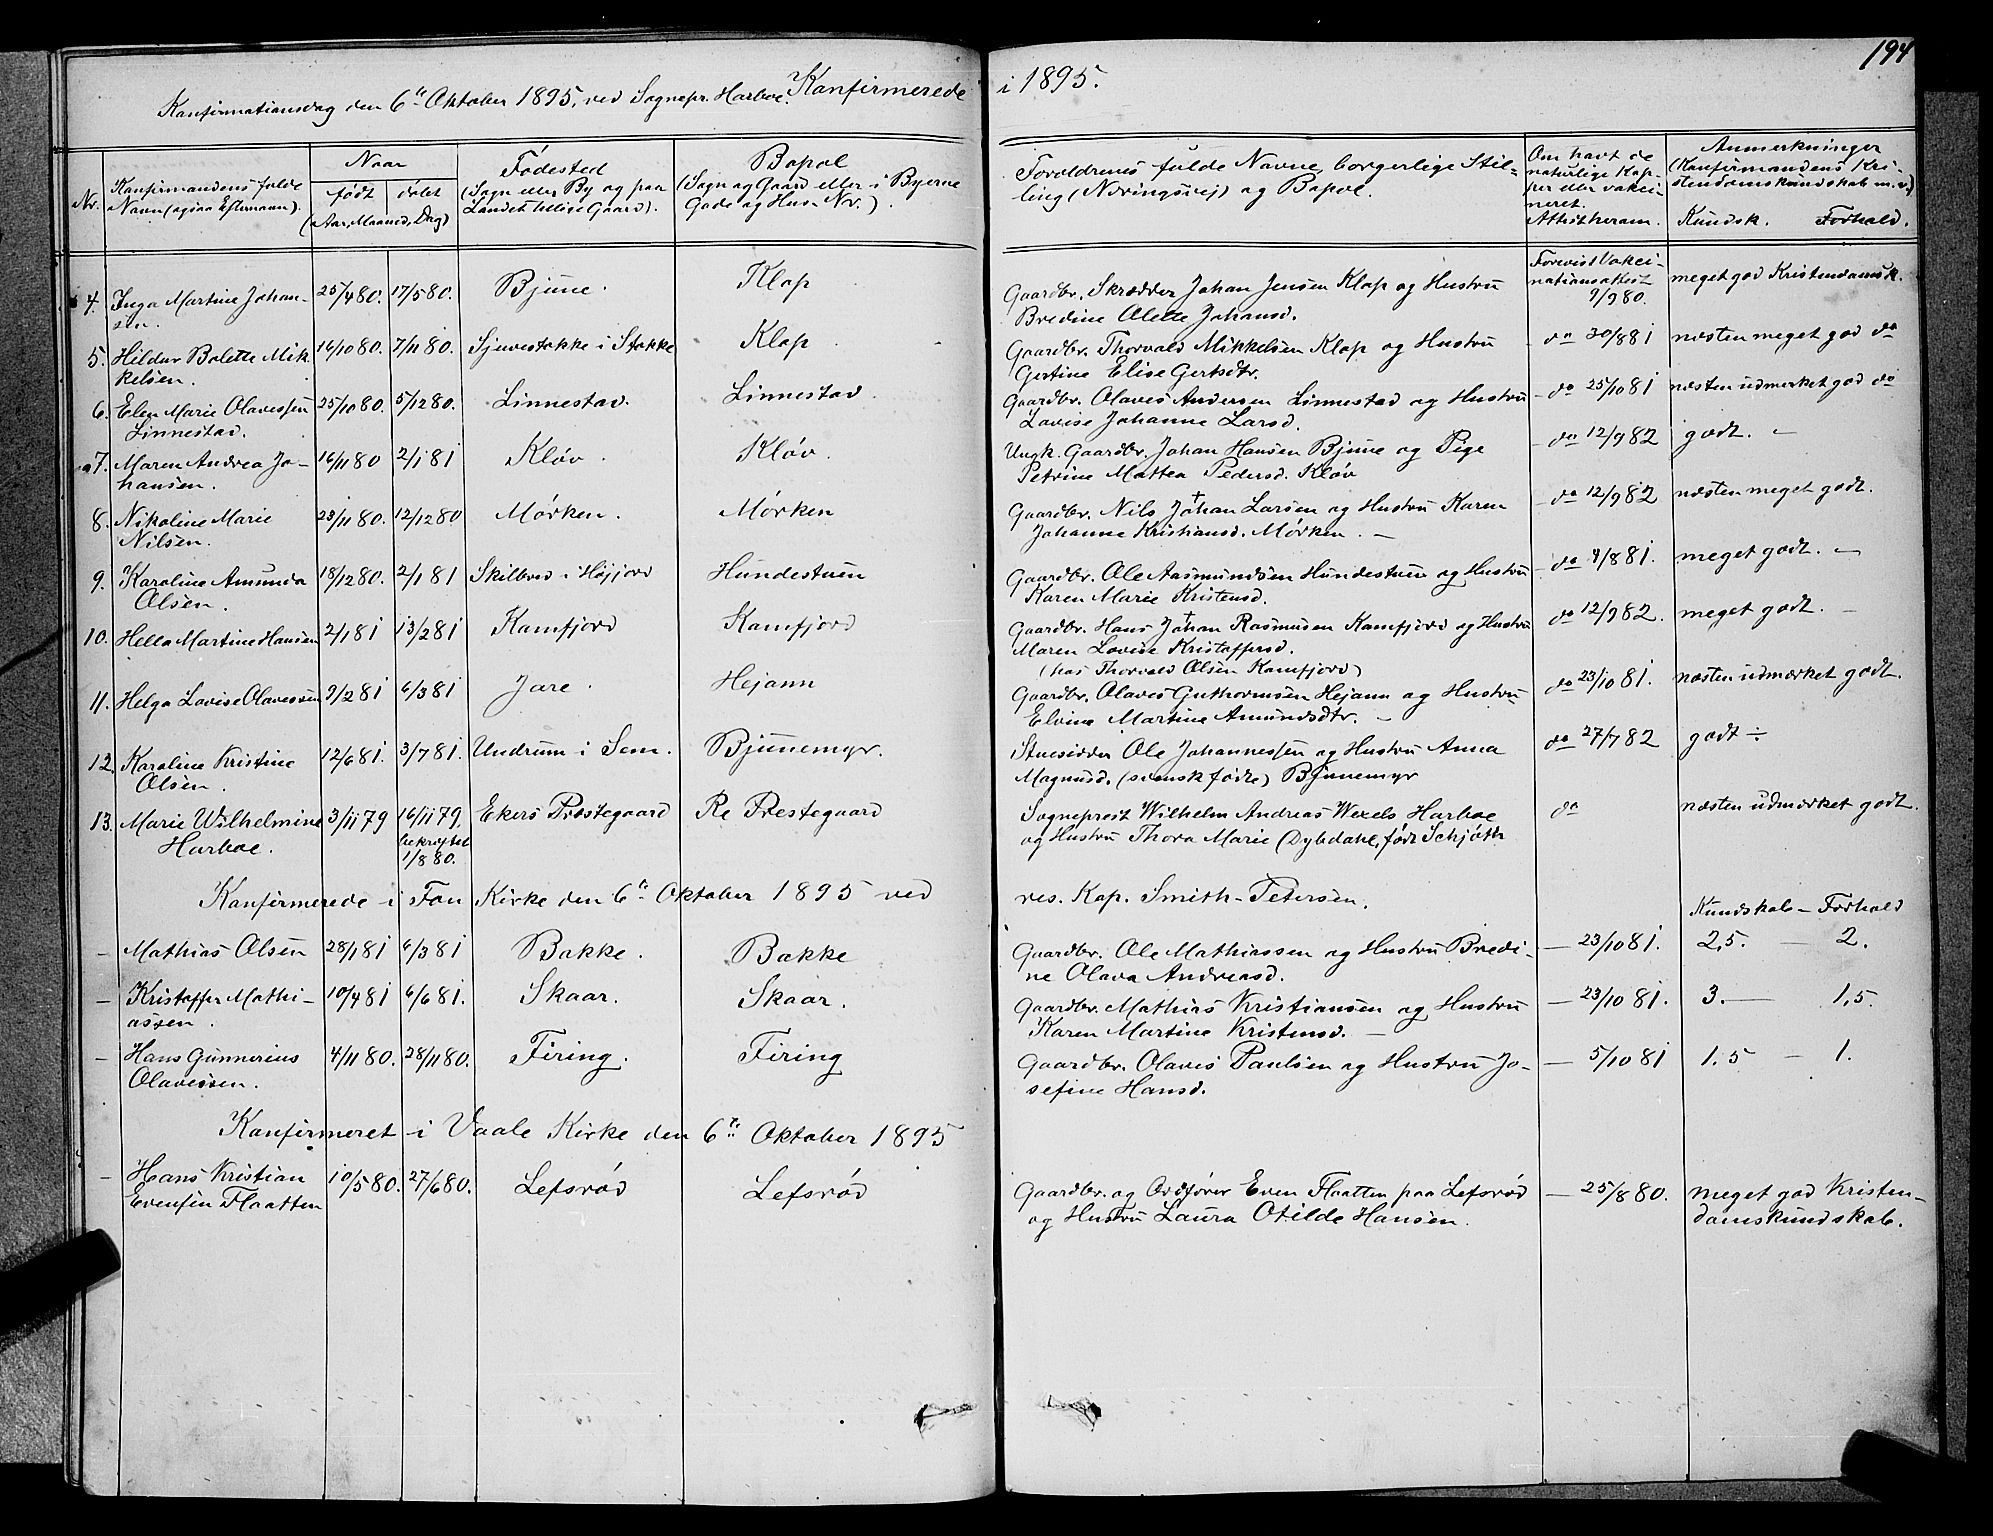 194
Konfirmerede i 1895.
Konfirmationsdag den 6te Oktober 1895, ved Sognepr. Harboe.
Nr.
Konfirmandens fulde
Navn (ogsaa Efternavn).
Naar
født døbt
(Aar, Maaned, Dag)
Fødested
(Sogn eller By og paa
Landet tillige Gaard).
Bopæl
(Sogn og Gaard eller i Byerne
Gade og Hus-Nr.).
Forældrenes fulde Navne, borgerlige Stil-
ling (Næringsvej) og Bopæl.
Om havt de
naturlige Kop-
per eller vakci-
neret.
Attest herom.
Anmerkninger
(Konfirmandens Kri-
stendomskundskab m.v.)
Kundsk. Forhold.
4. Inga Martine Johan-
sen. 25/4 80. 17/5 80. Bjune. Klop Gaardbr. Skrædder Johan Jensen Klop og Hustru
Bredine Olette Johansd. Forevist Vakci-
nationsattest
9/9 80. meget god Kristendomsk.
5. Hildur Bolette Mik
kelsen. 16/10 80. 7/11 80. Sjuestokke i Stokke Klop. Gaardbr. Thorvald Mikkelsen Klop og Hustru
Gertine Elise Gertsdtr. - do 30/8 81 næsten meget god do
6. Elen Marie Olavessen
Linnestad. 25/10 80. 5/12 80. Linnestad. Linnestad. Gaardbr. Olaves Andersen Linnestad og Hustru
Lovise Johanne Larsd. - do 25/10 81 næsten udmerket god do
7. Maren Andrea Jo-
hansen. 16/11 80 2/1 81 Kløv. Kløv. Ungk. Gaardbr. Johan Hansen Bjune og Pige
Petrine Mattea Pedersd. Kløv - do 12/9 82 godt. -
8. Nikoline Marie
Nilsen. 23/11 80. 12/12 80 Mørken. Mørken Gaardbr. Nils Johan † Larsen og Hustru Karen
Johanne Kristiansd. Mørken. - - do 12/9 82 næsten meget godt.
9. Karoline Amunda
Olsen. 18/12 80. 2/1 81 Skilbred i Højjord Hundestuen Gaardbr. Ole Aasmundsen Hundestuen og Hustru
Karen Marie Kristensd. - do 9/8 81. meget godt. -
10. Hella Martine Hansen 2/1 81 13/2 81 Kamfjord Kamfjord Gaardbr. Hans Johan † Rasmussen Kamfjord og Hustru
Maren Lovise Kristoffersd.
(hos Thorvald Olsen Kamfjord) do 12/9 82. meget godt. -
11. Helga Lovise Olavessen 9/2 81 6/3 81 Jare. Hejann Gaardbr. Olaves Guthormsen Hejann og Hustru
Elvine Martine Amundsdtr. - do 23/10 81. næsten udmærket godt.
12. Karoline Kristine
Olsen. 12/6 81. 3/7 81. Undrum i Sem. Bjunemyr. Stuesidder Ole Johannessen og Hustru Anna
Magnusd. (svensk fødte) Bjunemyr do 27/7 82 godt -
13. Marie Wilhelmine
Harboe. 3/11 79 16/11 79.
bekræftet
1/8 80. Ekers Præstegaard Re Prestegaard Sogneprest Wilhelm Andreas Wexels Harboe
og Hustru Thora Marie (Dybdahl, født Schjøth do næsten udmærket godt.
Konfirmerede i Fon Kirke den 6te Oktober 1895 ved res. Kap. Smith-Petersen.
Kundskab - Forhold
- Mathias Olsen 28/1 81 6/3 81 Bakke. Bakke Gaardbr. Ole Mathiassen og Hustru Bredi-
ne Olava Andreasd. - 23/10 81. 2,5. - 2.
- Kristoffer Mathi-
assen. 10/4 81 6/6 81. Skaar. Skaar. Gaardbr. Mathias Kristiansen og Hustru
Karen Martine Kristensd. - - 23/10 81. 3. - 1,5.
- Hans Gunnerius
Olavessen. 4/11 80. 28/11 80. Firing. Firing Gaardbr. Olaves Paulsen og Hustru Jo-
sefine Hansd. - 5/10 81 1.5 - 1.
Konfirmeret i Vaale Kirke den 6te Oktober 1895
- Hans Kristian
Evensen Flaatten 10/5 80. 27/6 80. Lefsrød Lefsrød Gaardbr. og Ordfører Even Flaatten paa Lefsrød
og Hustru Laura Otilde Hansen. - 25/8 80. meget god Kristen-
domskundskab.